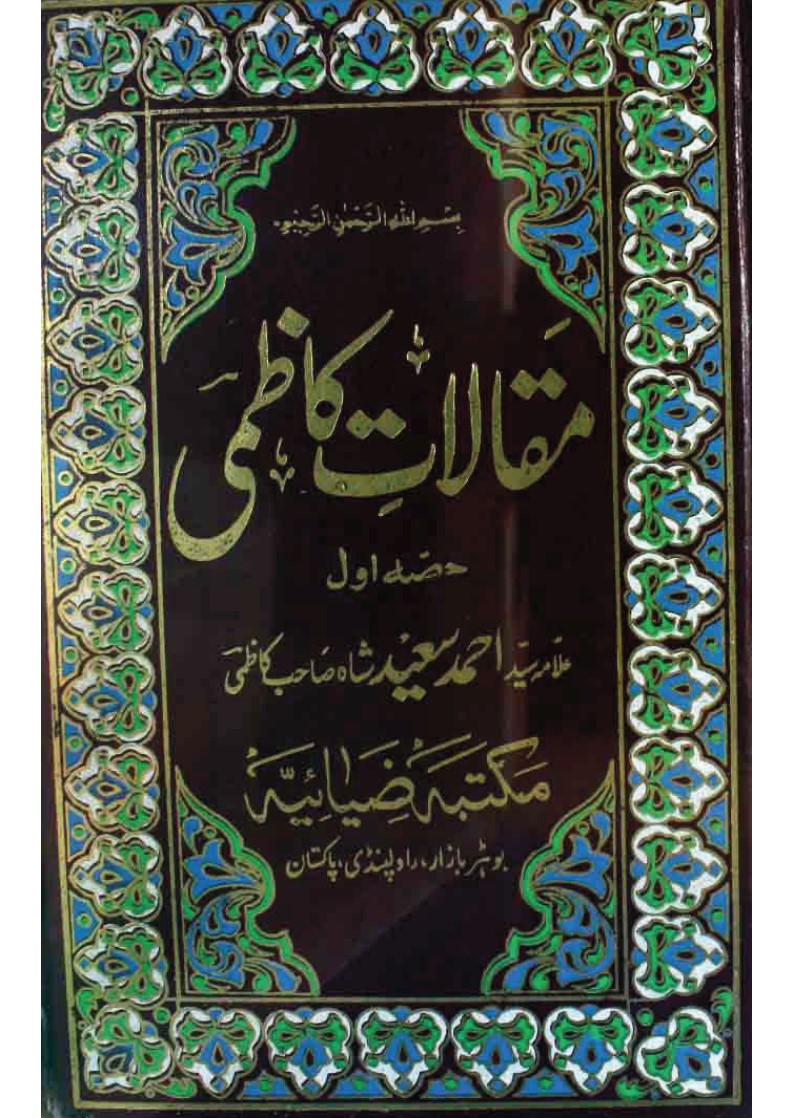 بِسْمِ اللهِ الرَّحْمٰنِ الرَّحِيْمِ
مَقَالَاتِ کَاظمی
حصّہ اول
علّامہ سیّد احمد سعید شاہ صاحب کاظمی
مکتبہ ضیائیہ
بوہڑ بازار، راولپنڈی، پاکستان